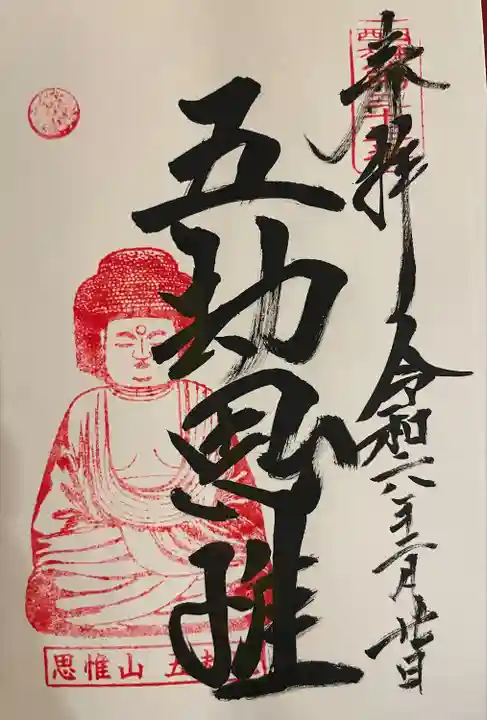 奉拝
令和六年二月廿日
五劫思惟
思惟山 五劫